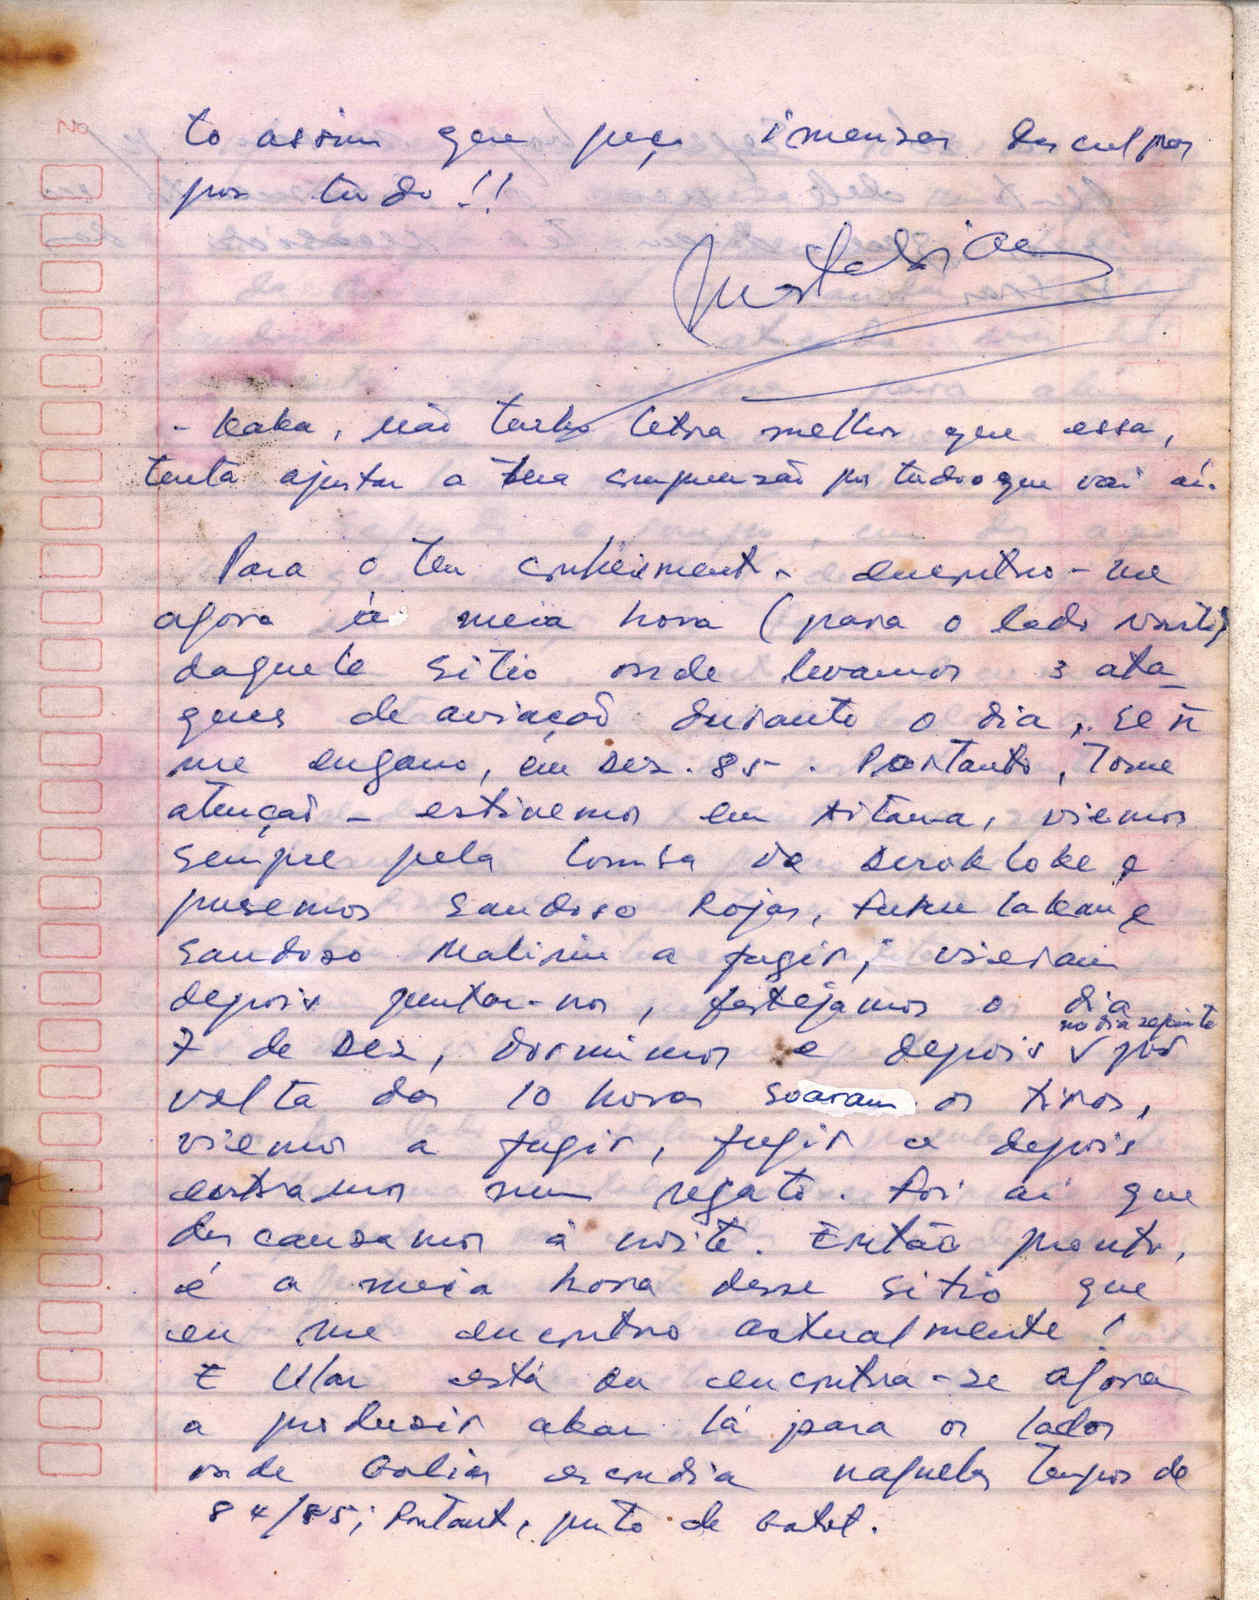 to assim que peço imensas desculpas
por tudo!!
- Kaka, não tenho letra melhor que essa,
tenta ajustar a tua compreensão por tudo que vai aí.
Para o teu conhecimento encontro-me
agora à meia hora (para o lado
daquele sitio onde levamos 3 ata_
ques de aviação durante o dia, se ñ
me engano, em Dez. 85. Portanto, tome
atenção - estivemos em Aitana, viemos
sempre pela lomba de Beroklobe e
pusemos Sandoso Rojas, e
Sandoso Malirin a fugir; vieram
depois juntar-nos, festejamos o dia
7 de Dez, dormimos e depois no dia seguinte por
volta das 10 horas soaram os tiros,
viemos a fugir, fugir e depois
entramos num regato. Foi aí que
descansamos à noite. Então pronto,
é a meia hora desse sitio que
eu me encontro actualmente!
E Ular está ou encontra-se agora
a produzir akar lá para os lados
onde escondia naqueles tempos de
84/85; Portanto, perto de